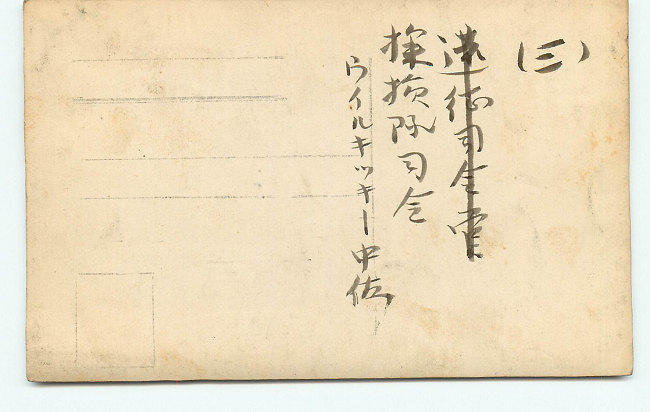 (三)
遠征司令官
探検隊司令
ウイルキツキー中佐